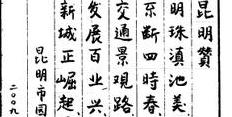 昆明贊
明珠滇池美
断四時春
交通景观路
发展百业兴
新城正崛起
昆明市园
二〇〇九